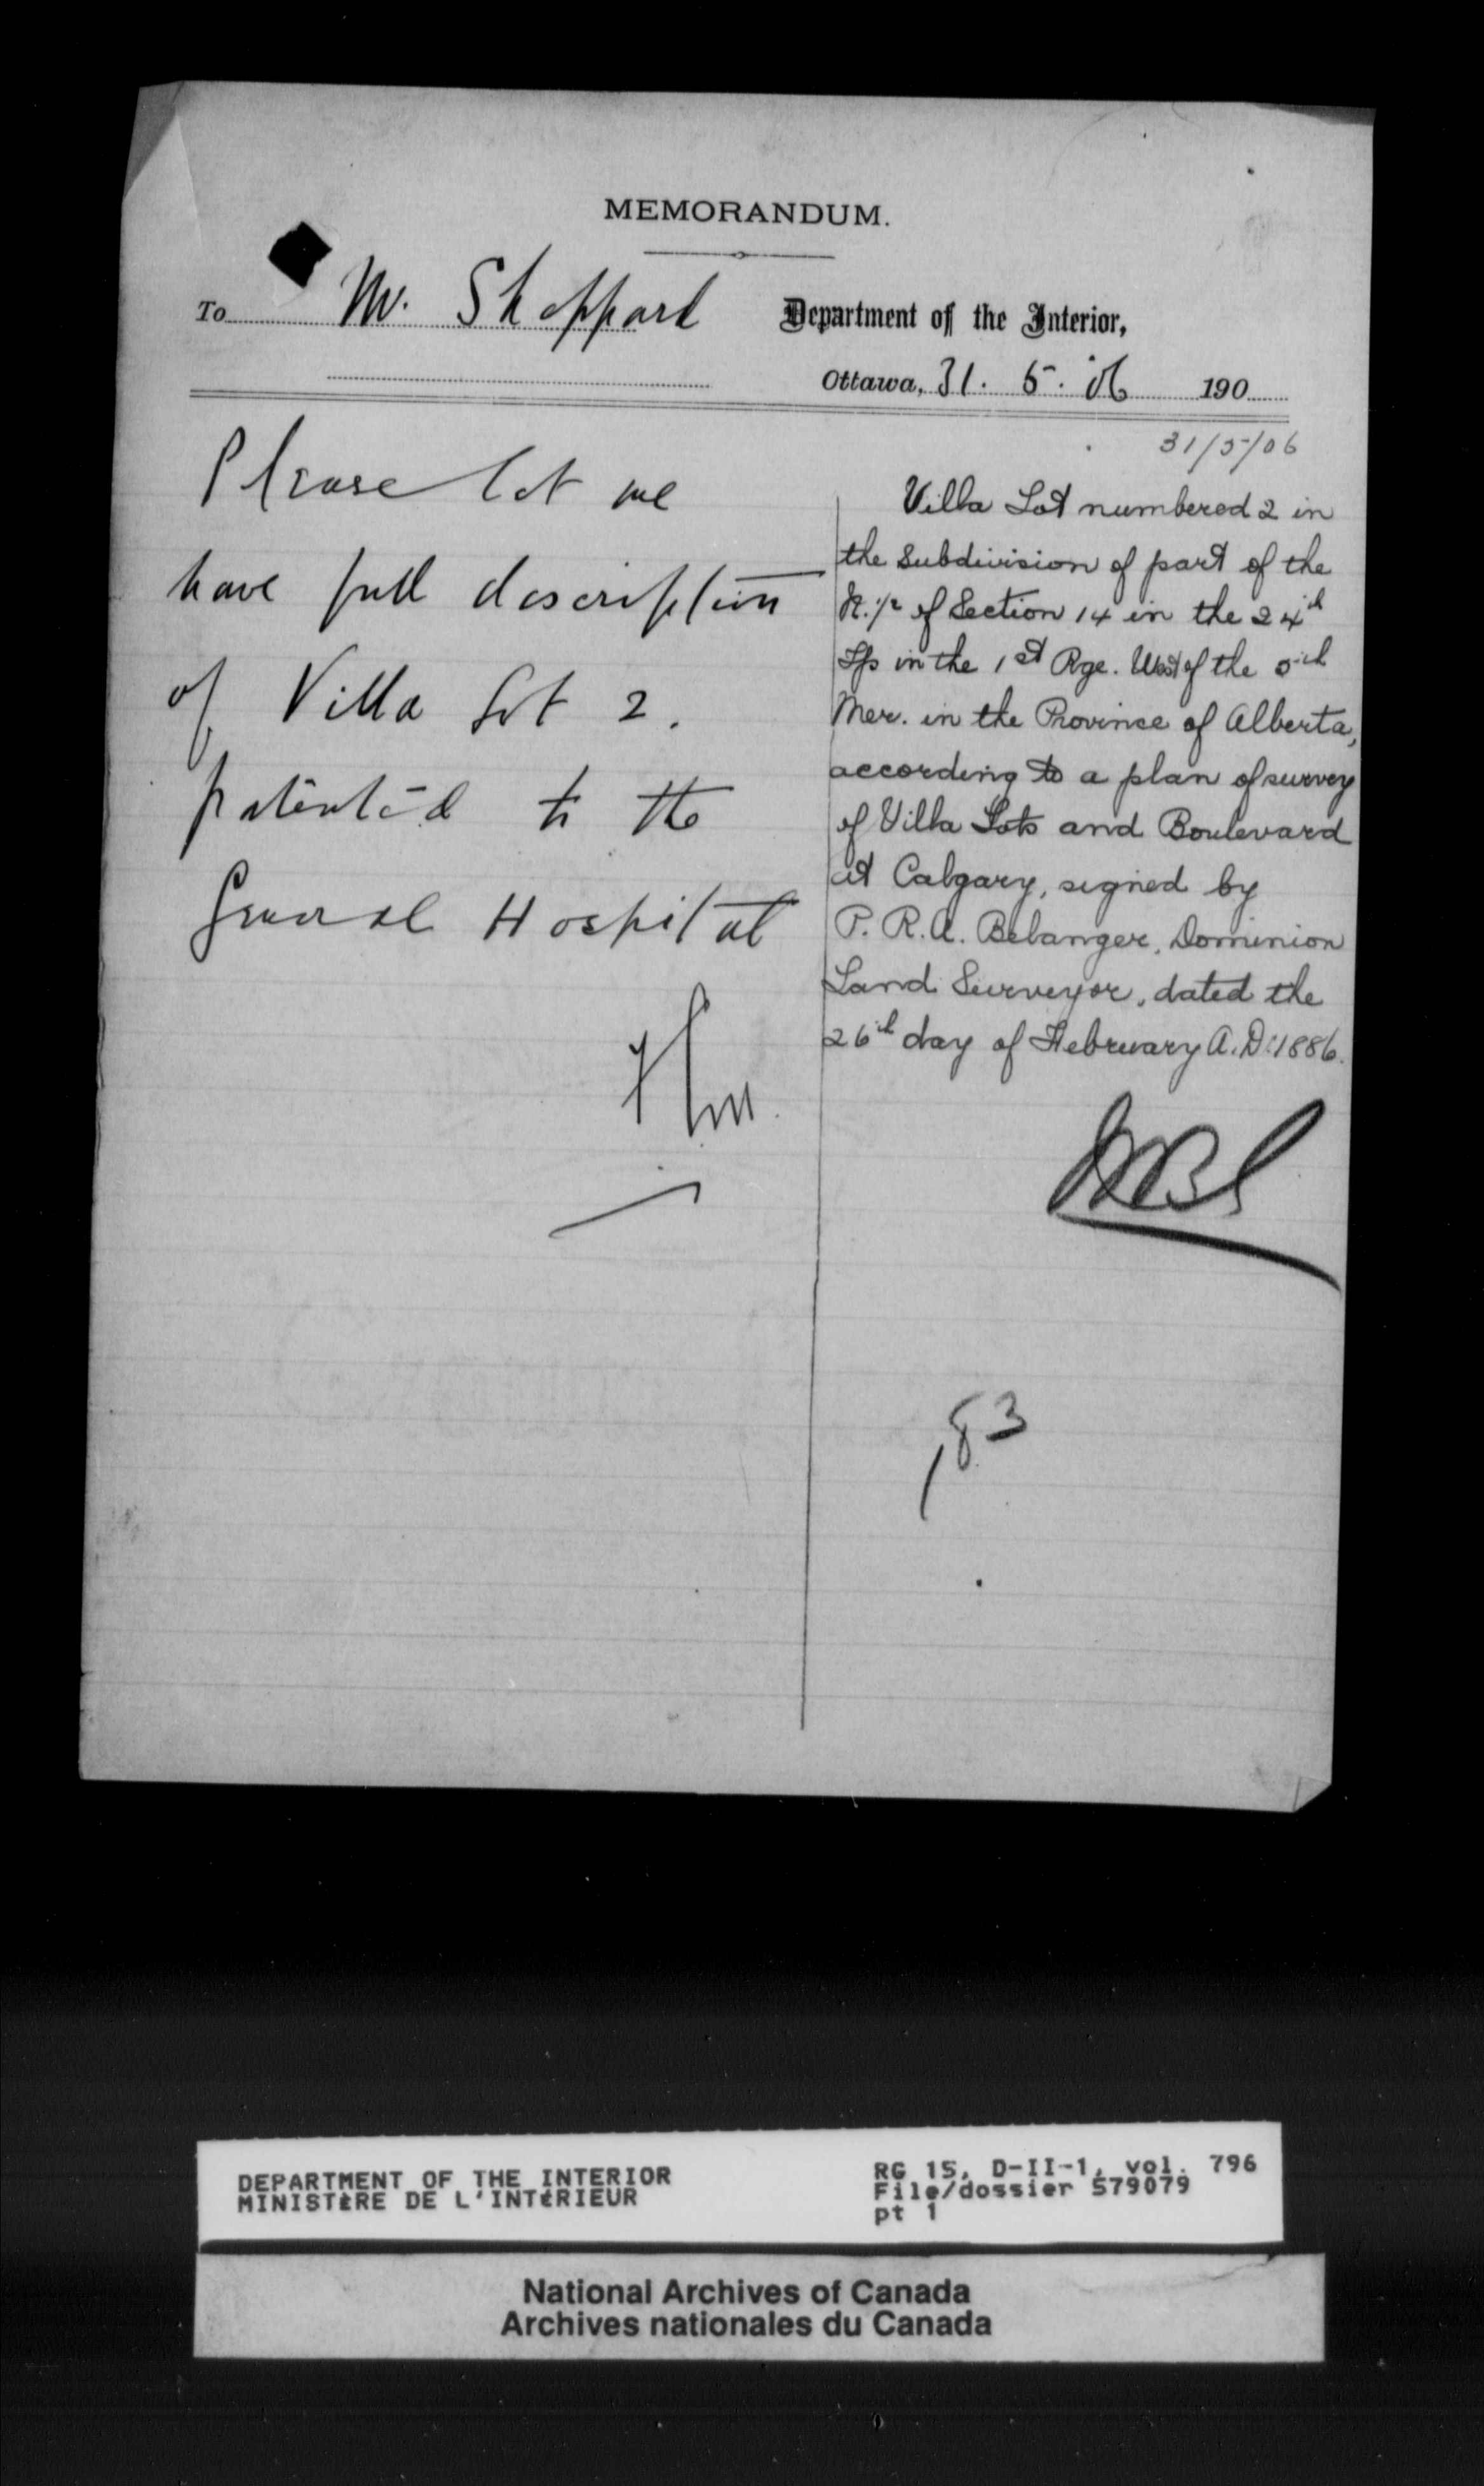 MEMORANDUM.
To Mr. Sheppard
Department of the Interior,
Ottawa, 31. 5. 06 190
Please let me
have full description
of Villa Lot 2.
patented to the
General Hospital
31/5/06
Villa Lot numbered 2 in
the subdivision of part of the
N. 1/2 of Section 14 in the 24th
Tp in the 1st Rge. West of the 5th
Mer. in the Province of Alberta,
according to a plan of survey
of Villa Lots and Boulevard
at Calgary, signed by
P. R. A. Belanger, Dominion
Land Surveyor, dated the
26th day of February A.D. 1886.
183
DEPARTMENT OF THE INTERIOR
MINISTÈRE DE L'INTÉRIEUR
RG 15, D-II-1, vol. 796
File/dossier 579079
pt 1
National Archives of Canada
Archives nationales du Canada